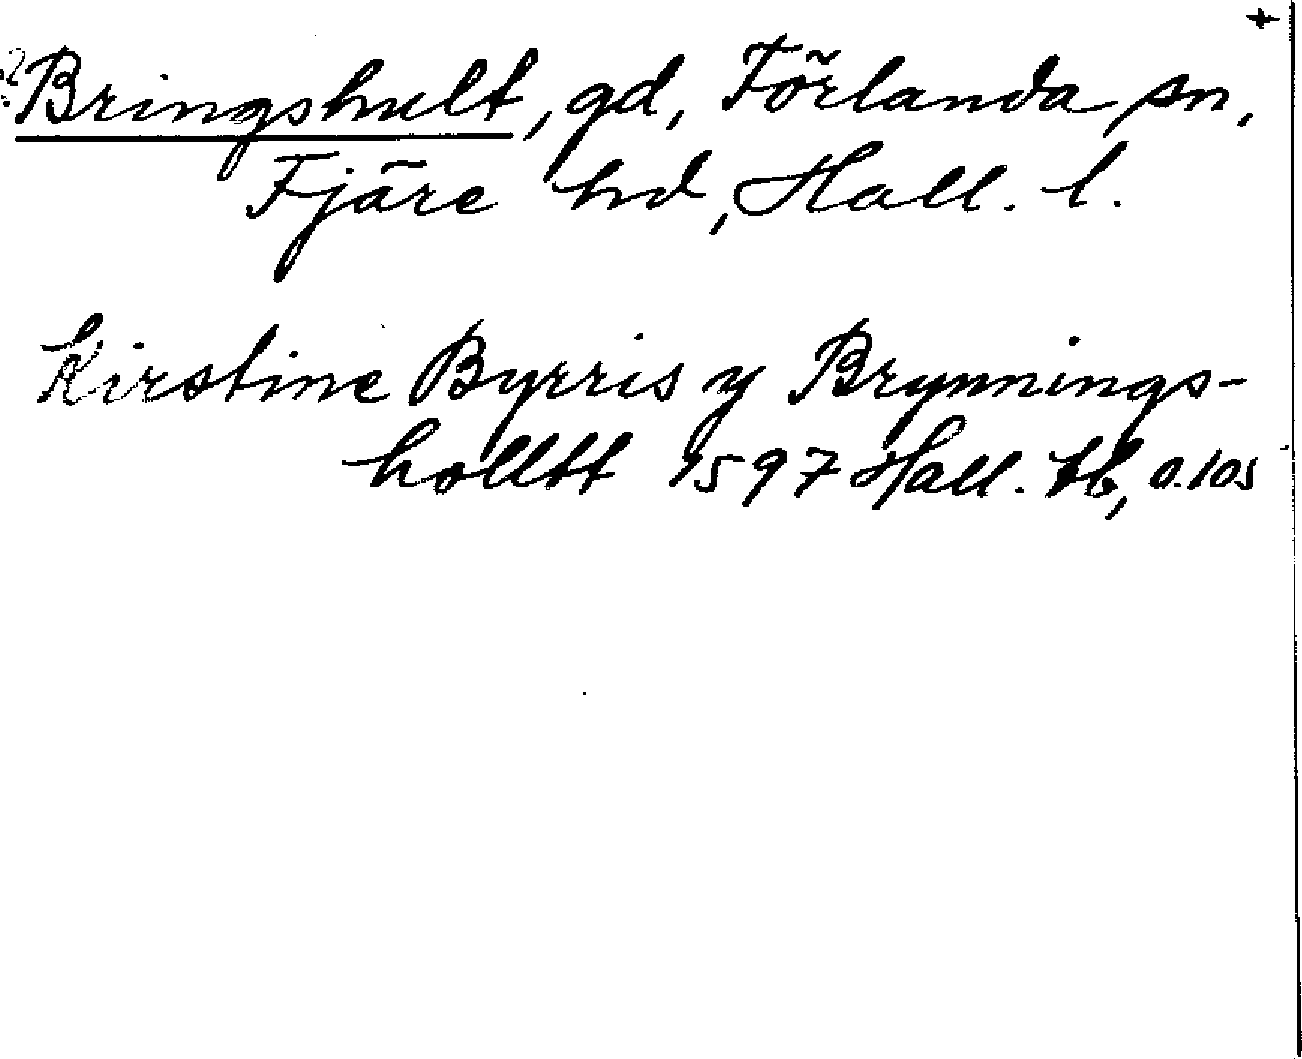 +
? Bringshult, gd, Förlanda sn,
Fjäre hd, Hall. l.
Kirstine Byrris y Brynnings-
holltt 1597 Hall. tb, o. 105